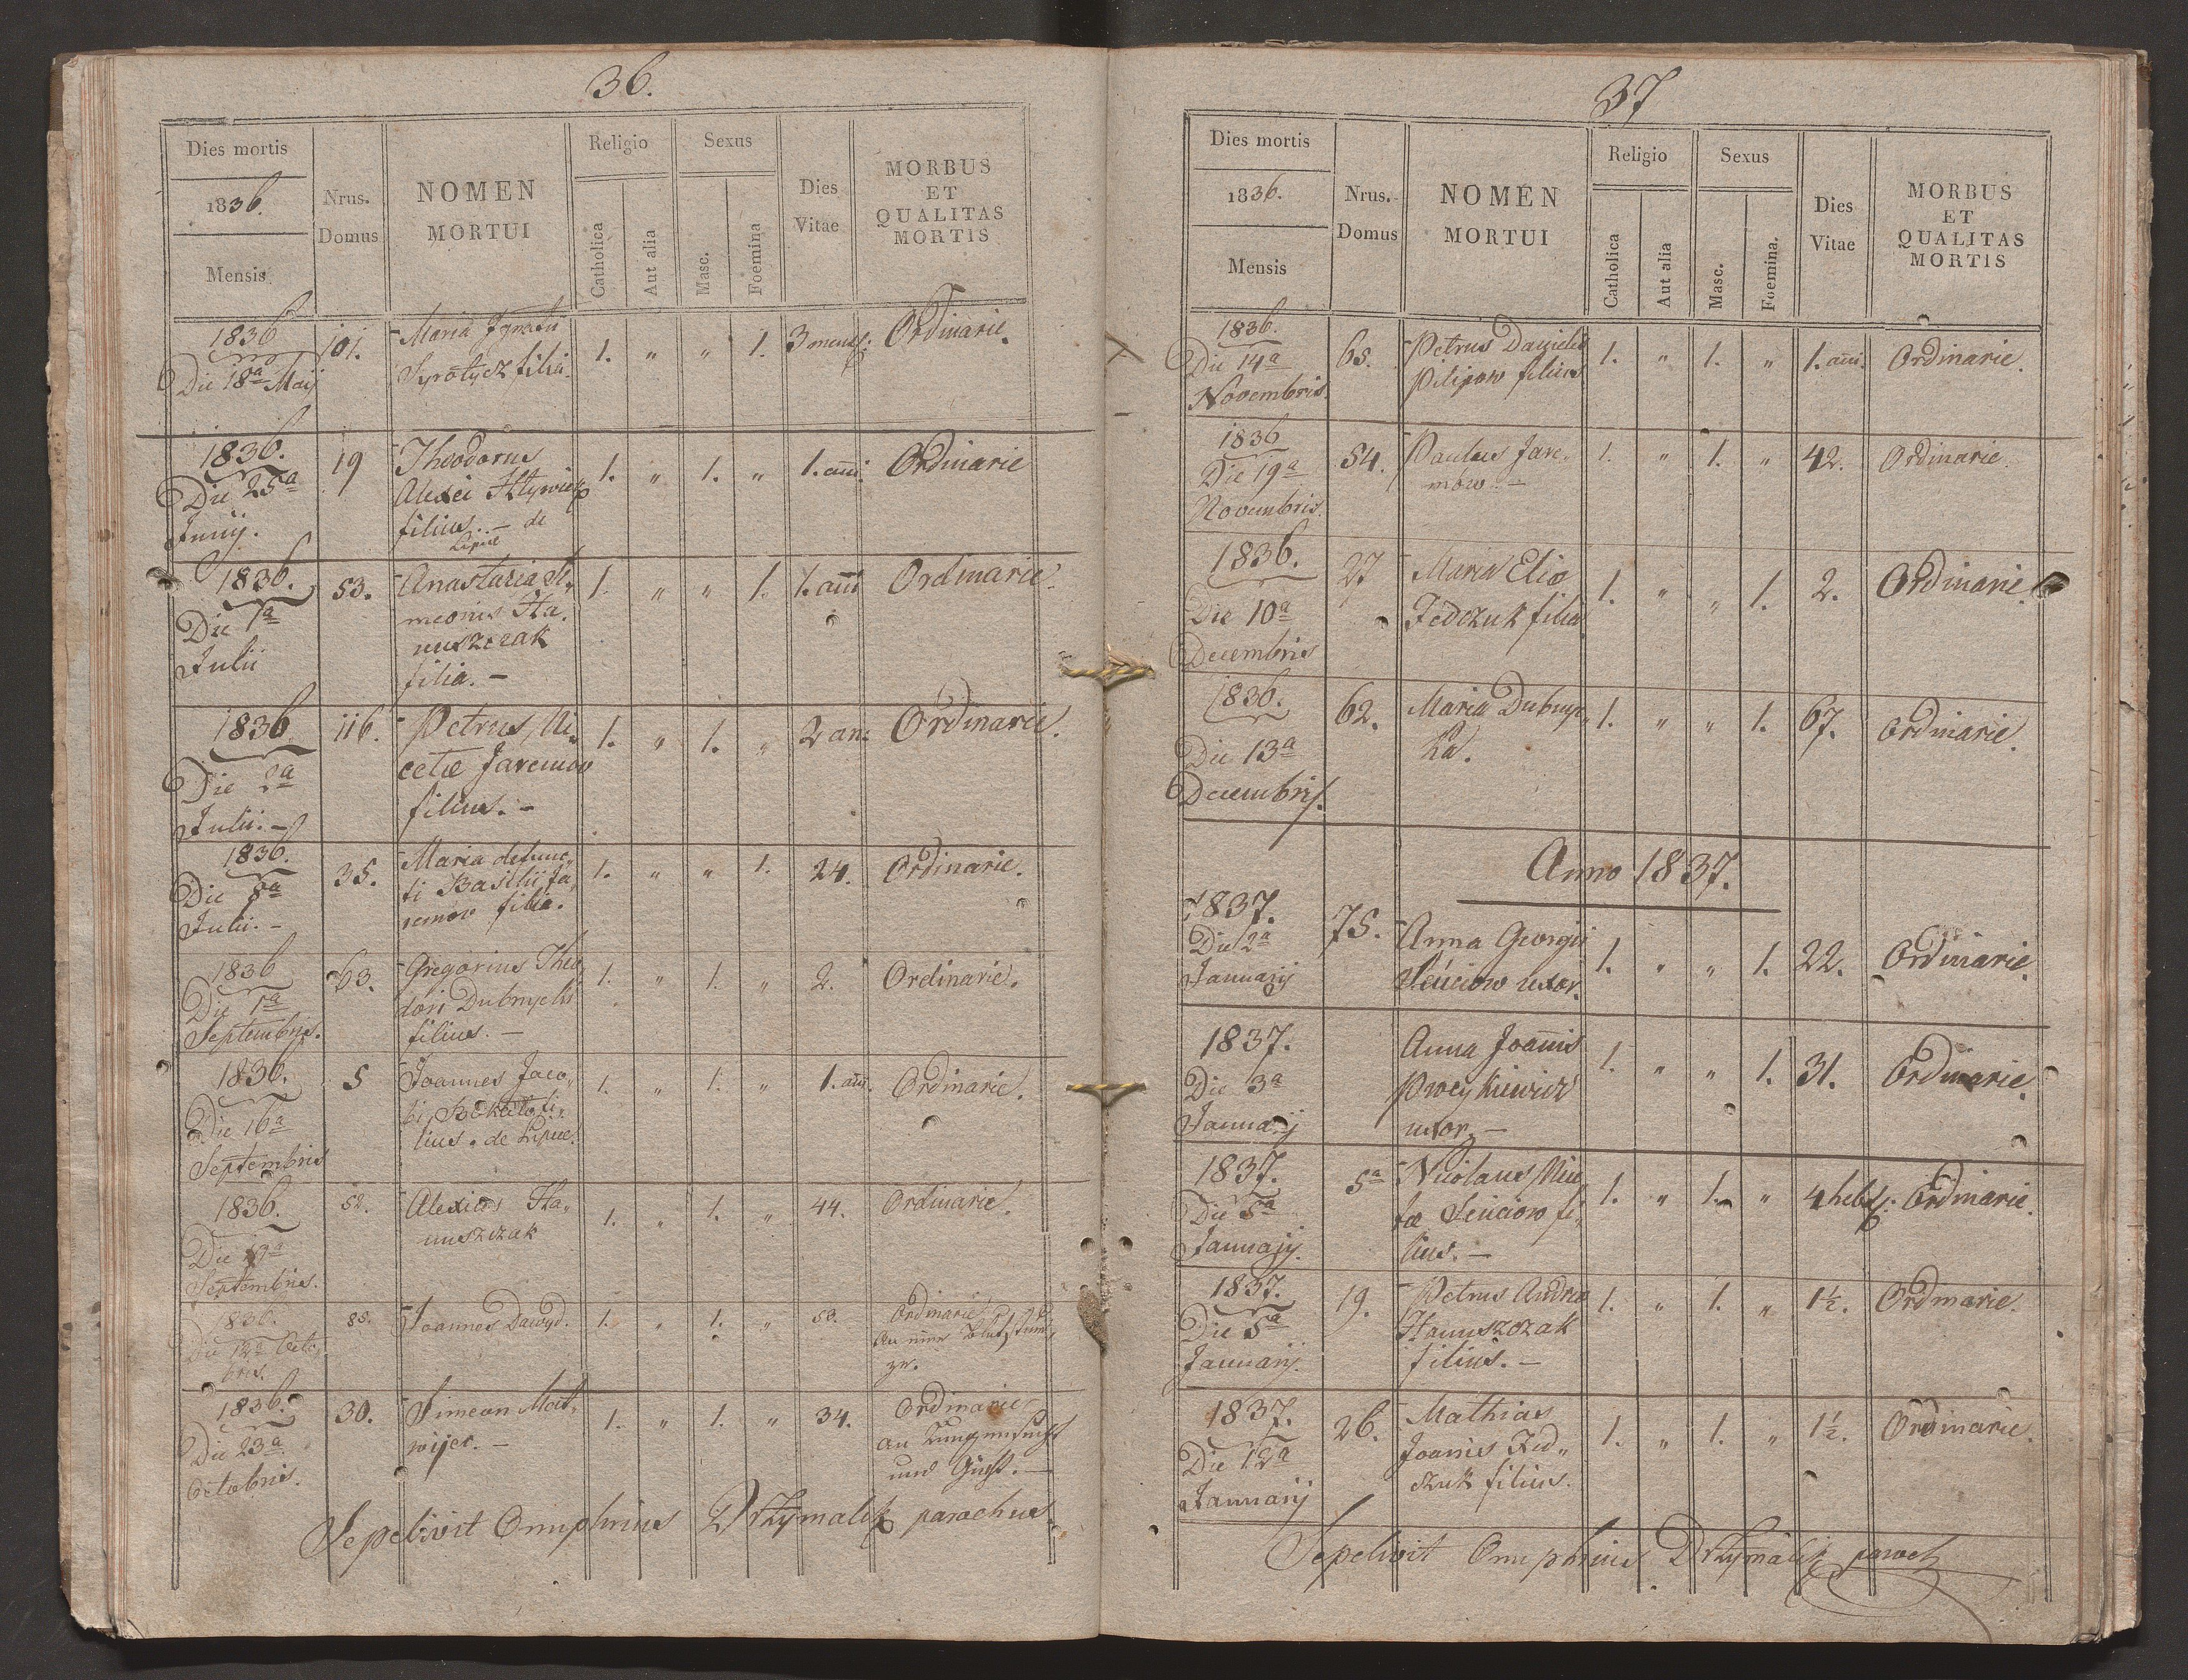 36.
Dies mortis
1836.
Mensis
Nrus.
Domus
NOMEN
MORTUI
Religio
Catholica
Aut alia
Sexus
Masc.
Foemina
Dies
Vitae
MORBUS
ET
QUALITAS
MORTIS
1836 101. Maria Ignatii 1. " " 1. 3 mens: Ordinarie.
Die 18a Maij Syrotycz filia.
1836. 19 Theodorus 1. " 1. " 1. anni Ordinarie
Die 25a Alexei
Junij. filius. – de
Lipie
1836. 53. Anastazia Si„ 1. " " 1. 1. anni Ordinarie.
Die 1a meonis Ha„
Julii nuszczak
filia. –
1836. 116. Petrus, Ni„ 1. " 1. " 2 an: Ordinarie.
Die 2a cetae Jaremow
Julii. – filius. –
1836. 35. Maria defunc„ 1. " " 1. 24. Ordinarie.
Die ti Basilii Ja„
Julii. – remow filia.
1836 63. Gregorius Theo„ 1. " 1. " 2. Ordinarie.
Die 1a dori Dubnycki
Septembris. filius. –
1836. 5 Joannes Jaco„ 1. " 1. " 1. ani. Ordinarie.
Die 16a bi fi„
Septembris lius. de Lipie.
1836. 52. Alexius Ha„ 1. " 1. " 44. Ordinarie.
Die nuszczak
Septembris.
1836. Joannes Dawyd. 1. " 1. " 53. Ordinarie
Die 12a Octo„ an einem
bris.
1836. 30. Simeon Mat„ 1. " 1. " 34. Ordinarie
Die 23a wijer. – an Lungensucht
Octobris. und Gicht. –
Sepelivit Onuphrius Drzymalik parochus
37
Dies mortis
1836.
Mensis
Nrus.
Domus
NOMEN
MORTUI
Religio
Catholica
Aut alia
Sexus
Masc.
Foemina.
Dies
Vitae
MORBUS
ET
QUALITAS
MORTIS
1836. 65. Petrus Danielis 1. " 1. " 1. ani. Ordinarie.
Die 14a Pilipow filius
Novembris.
1836 54. Paulus Jare„ 1. " 1. " 42. Ordinarie.
Die 19a mow. –
Novembris.
1836. 27 Maria Eliae 1. " " 1. 2. Ordinarie.
Die 10a Fedczuk filia
Decembris
1836. 62. Maria Dubnyc„ 1. " " 1. 67. Ordinarie.
Die 13a ka.
Decembris.
Anno 1837.
1837. 75. Anna Georgii 1. " " 1. 22. Ordinarie.
Die 2a Senciow uxor.
Januarij
1837. Anna Joannis 1. " " 1. 31. Ordinarie.
Die 3a
Januarij uxor. –
1837. 5a Nicolaus Mic„ 1. " 1. " 4 hebd: Ordinarie.
Die 5a Senciow fi„
Januarij. lius. –
1837. 19. Petrus Andreae 1. " 1. " 1½. Ordinarie.
Die 5a Hanuszczak
Januarij. filius. –
1837. 26. Mathias 1. " 1. " 1½. Ordinarie.
Die 12a Joannis Fed„
Januarij czuk filius.
Sepelivit Onuphrius Drzymalik paroch